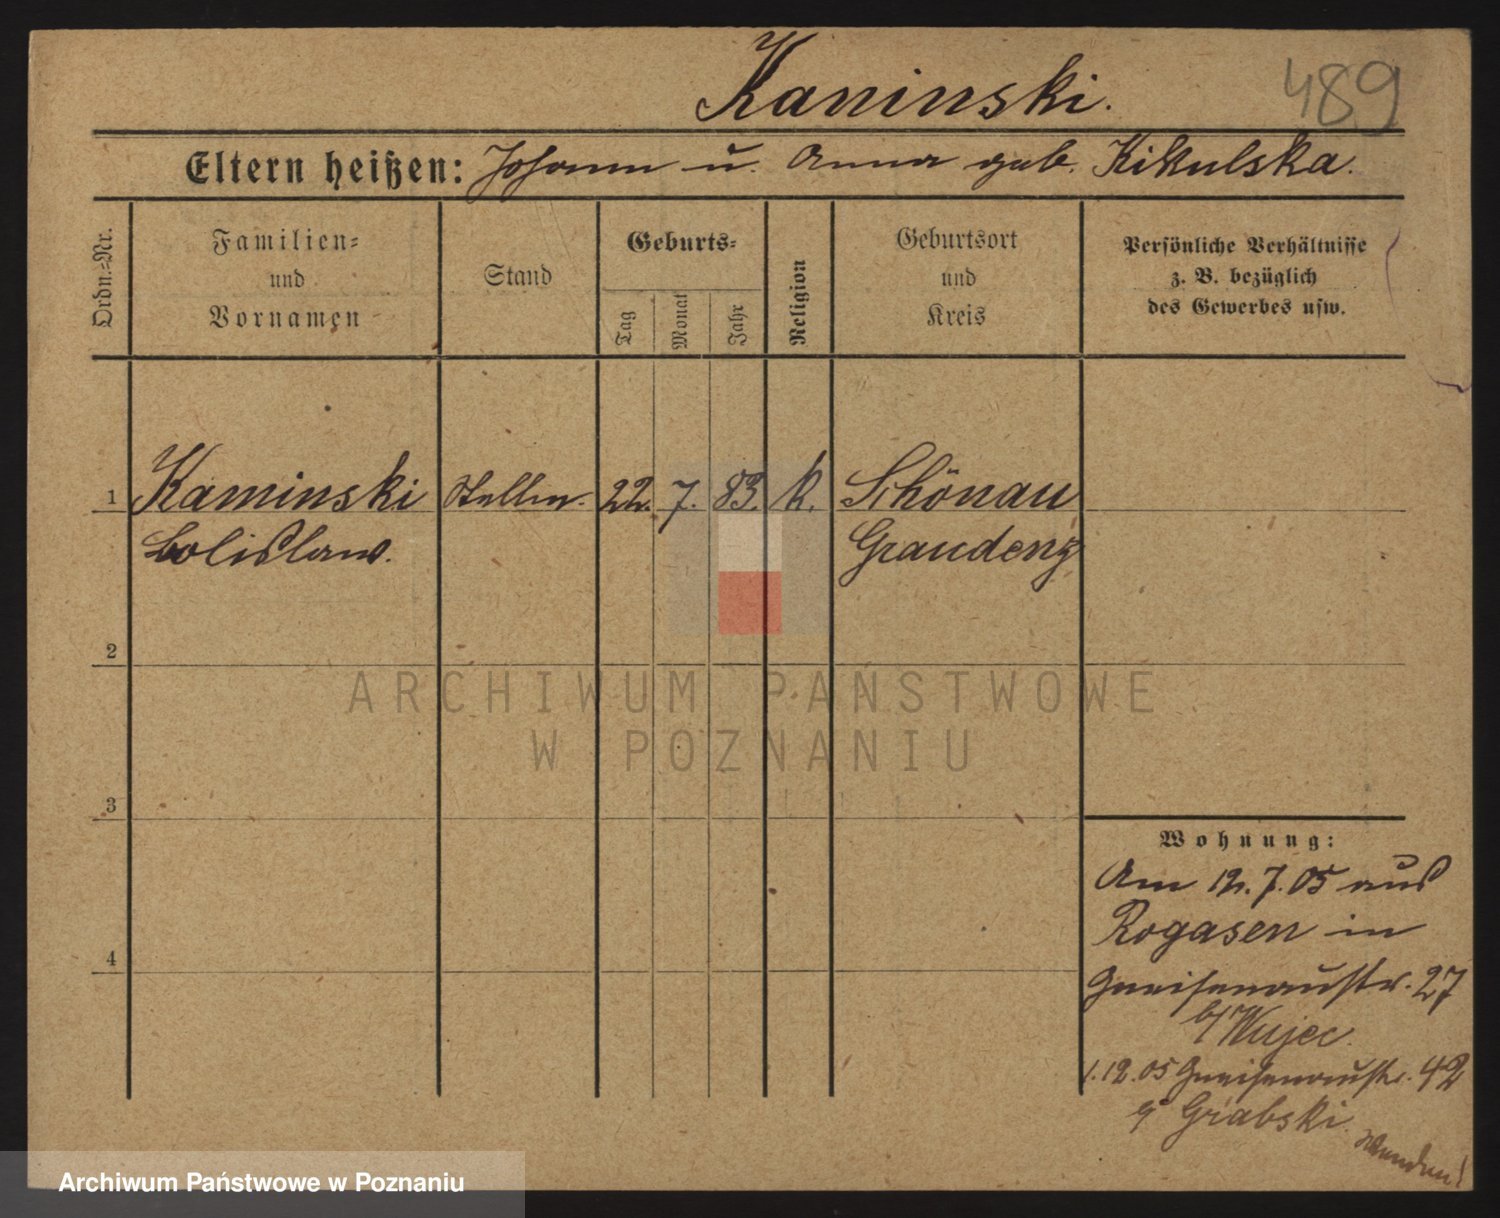 Kaminski.
489
Eltern heißen: Johann u. Anna geb. Kikulska.
Ordn.=Nr.
Familien=
und
Vornamen
Stand
Geburts=
Tag
Monat
Jahr
Religion
Geburtsort
und
Kreis
Persönliche Verhältnisse
z. B. bezüglich
des Gewerbes usw.
1
Kaminski
Stellm.
22. 7. 83. k.
Schönau
Boleslaw.
Graudenz
2
ARCHIWUM PAŃSTWOWE
W POZNANIU
3
Wohnung:
Am 12.7.05 aus
Rogasen in
4
Gneisenaustr. 27
b/ Wujec.
1.12.05 Gneisenaustr. 42
Grabski.
Wenden!
Archiwum Państwowe w Poznaniu